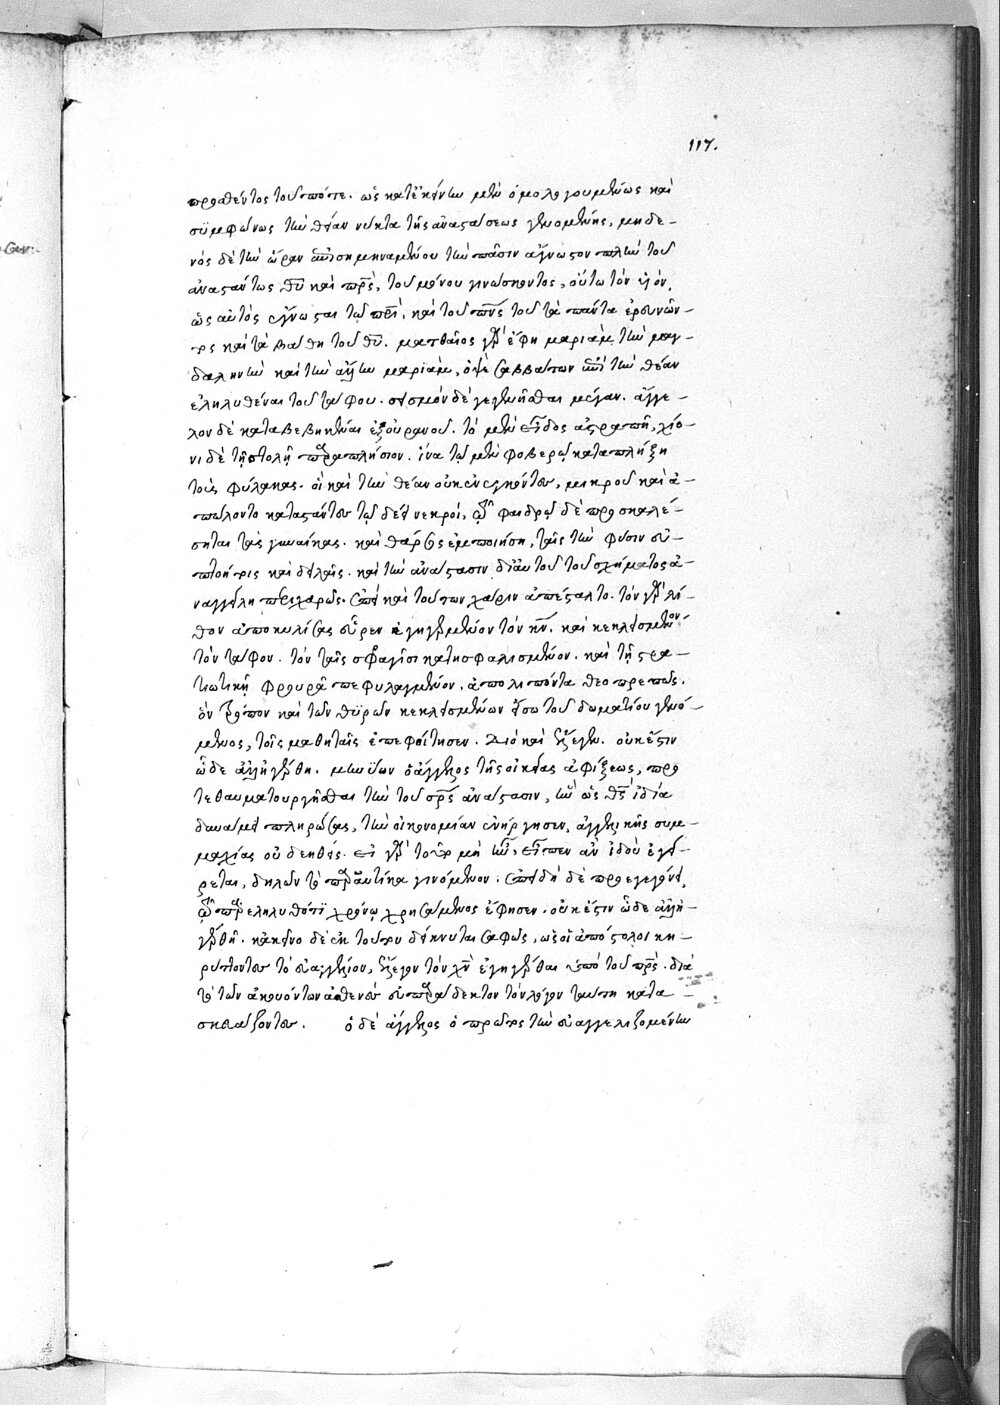 117.
προσθέντος τοῦ πότε. ὡς κατ' ἐκείνην μὲν ὁμολογουμένως καὶ
συμφώνως τὴν θείαν νύκτα τῆς ἀναστάσεως γενομένης, μηδε-
νὸς δὲ τὴν ὥραν ἐπισημηναμένου τὴν πᾶσιν ἄγνωστον πλὴν τοῦ
ἀναστάντος θυ καὶ πρς, τοῦ μόνου γινώσκοντος, οὕτω τὸν υἱὸν,
ὡς αὐτὸς ἔγνωσται τῷ πρι, καὶ τοῦ πνς τοῦ τὰ πάντα ἐρευνῶν-
τος καὶ τὰ βάθη τοῦ θυ. ματθαῖος γὰρ ἔφη μαριὰμ τὴν μαγ-
δαληνὴν καὶ τὴν ἄλλην μαριὰμ, ὀψὲ σαββάτων ἐπὶ τὴν θέαν
ἐληλυθέναι τοῦ τάφου. σεισμὸν δὲ γεγενῆσθαι μέγαν. ἄγγε-
λον δὲ καταβεβηκέναι ἐξ οὐρανοῦ. τὸ μὲν εἶδος ἀστραπῇ, χιό-
νι δὲ τῇ στολῇ παραπλήσιον. ἵνα τῷ μὲν φοβερῷ καταπλήξῃ
τοὺς φύλακας. οἱ καὶ τὴν θέαν οὐκ ἐνεγκόντες, μικροῦ καὶ ἀ-
πώλοντο καταστάντες τῷ δέει νεκροί, τῷ φαιδρῷ δὲ προσκαλέ-
σηται τὰς γυναῖκας. καὶ θάρσος ἐμποιήσῃ, ταῖς τὴν φύσιν εὐ-
πτοήτοις καὶ δειλαῖς. καὶ τὴν ἀνάστασιν δι' αὐτοῦ τοῦ σχήματος ἀ-
ναγγείλῃ περιχαρῶς. ἐπεὶ καὶ τούτων χάριν ἀπέσταλτο. τὸν γὰρ λί-
θον ἀποκυλίσας εὗρεν ἐγηγερμένον τὸν κν. καὶ κεκλεισμένον
τὸν τάφον. τὸν ταῖς σφραγῖσι κατησφαλισμένον. καὶ τῇ στρα-
τιωτικῇ φρουρᾷ πεφυλαγμένον, ἀπολιπόντα θεοπρεπῶς.
ὃν τρόπον καὶ τῶν θυρῶν κεκλεισμένων εἴσω τοῦ δωματίου γενό-
μενος, τοῖς μαθηταῖς ἐπεφοίτησεν. Διὸ καὶ ἔλεγεν. οὐκ ἔστιν
ὧδε ἀλλ' ἠγέρθη. μηνύων ὁ ἄγγελος τῆς οἰκείας ἀφίξεως, προ
τεθαυματουργῆσθαι τὴν τοῦ σρς ἀνάστασιν, ἣν ὡς θς ἰδίᾳ
δυνάμει πληρώσας, τὴν οἰκονομίαν ἐνήργησεν, ἀγγελικῆς συμ-
μαχίας οὐ δεηθείς. εἰ γὰρ τοῦτο μὴ ἦν, εἶπεν ἂν ἰδοὺ ἐγεί-
ρεται, δηλῶν τὸ παραυτίκα γινόμενον. ἐπειδὴ δὲ προεγεγόνει,
τῷ παρεληλυθότι χρόνῳ χρησάμενος ἔφησεν. οὐκ ἔστιν ὧδε ἀλλ' ἠ-
γέρθη. κἀκεῖνο δὲ ἐκ τούτου δείκνυται σαφῶς, ὡς οἱ ἀπόστολοι κη-
ρύττοντες τὸ εὐαγγέλιον, ἔλεγον τὸν χν ἐγηγέρθαι ὑπὸ τοῦ πρς. διὰ
τὸ τῶν ἀκουόντων ἀσθενὲς εὐπαράδεκτον τὸν λόγον ταύτῃ κατα-
σκευάζοντες. ὁ δὲ ἄγγελος ὁ πρῶτος τὴν εὐαγγελιζομένην